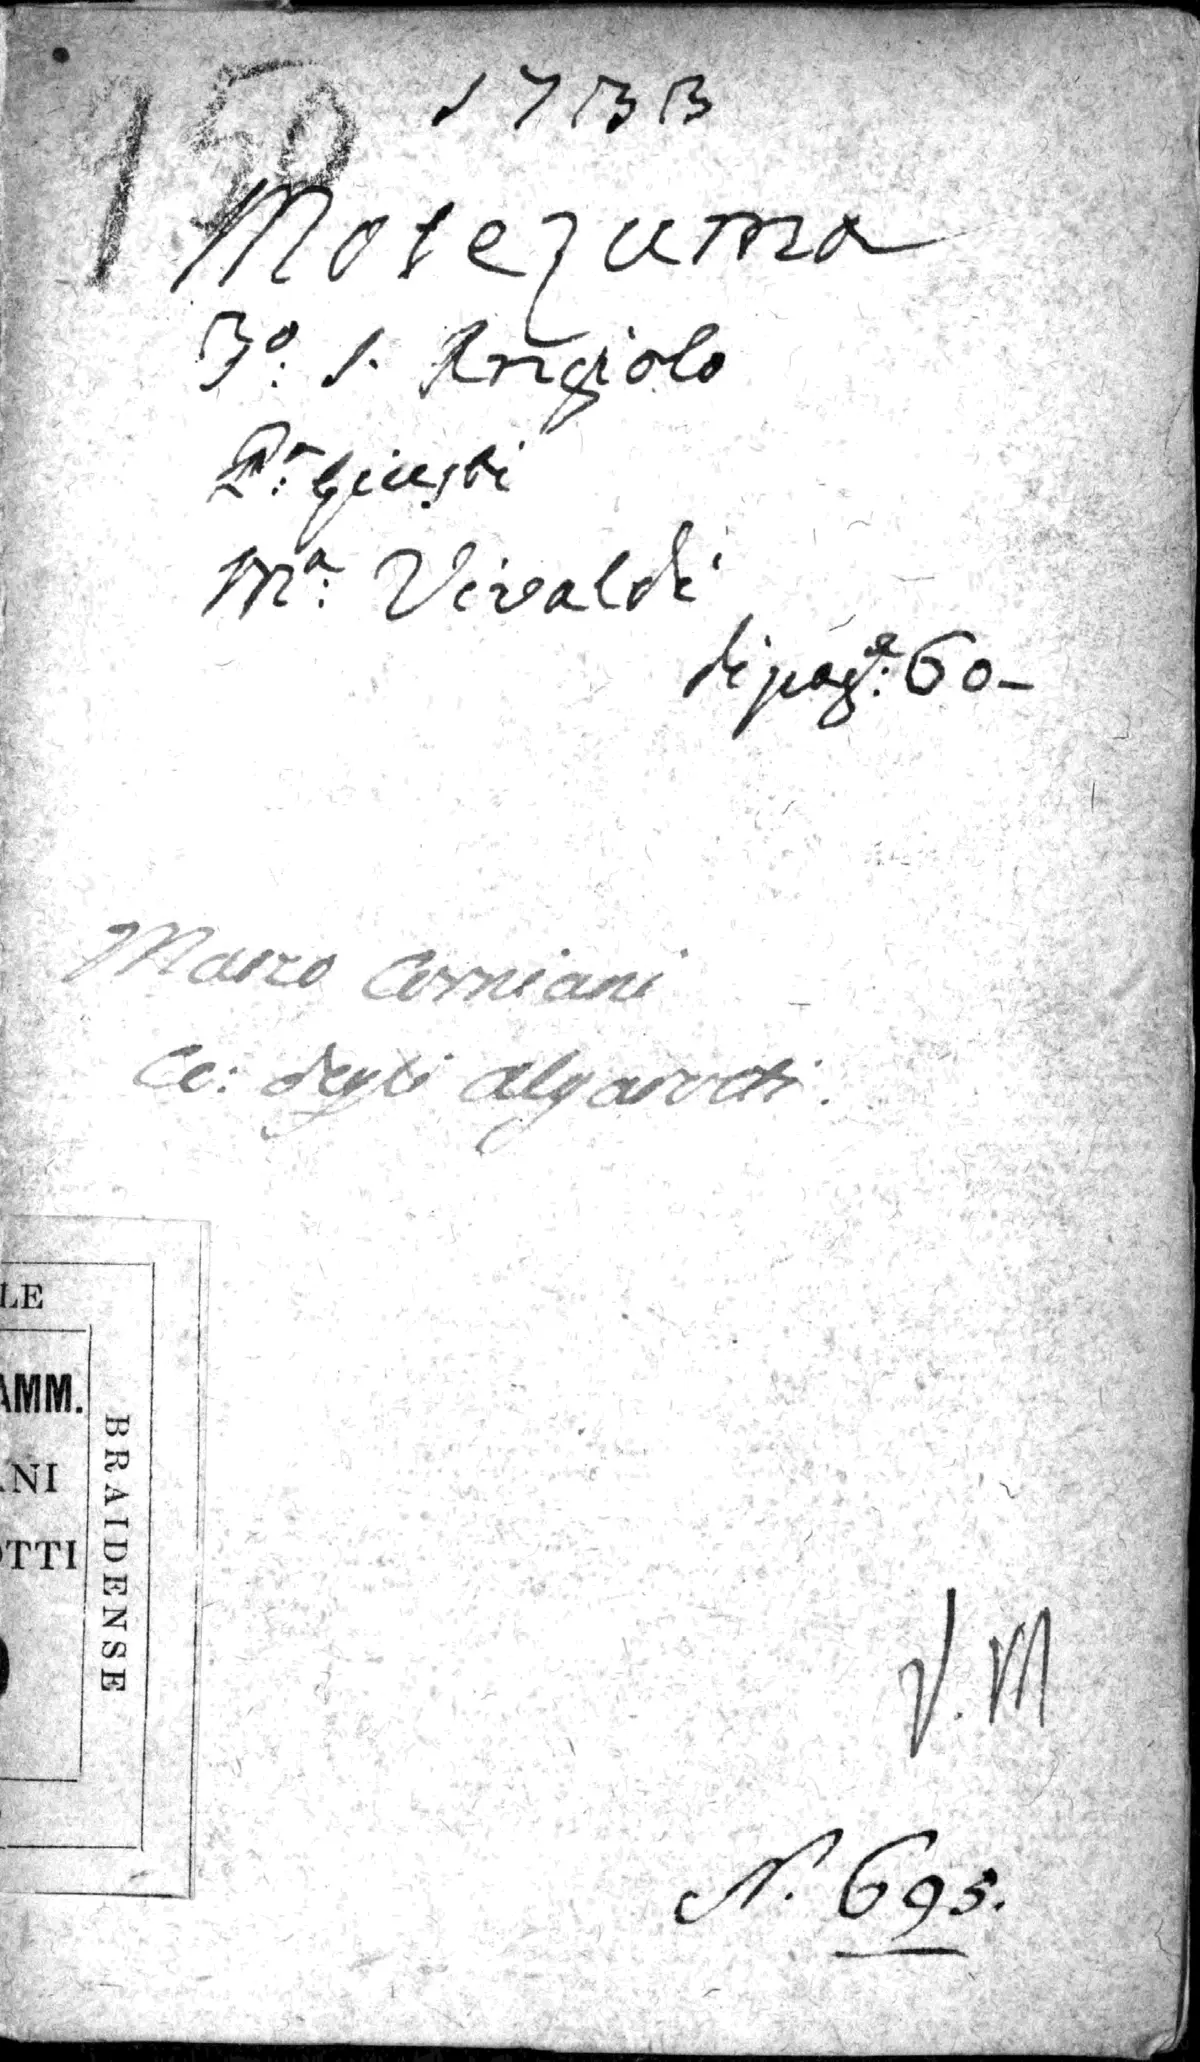 150
1733
Motezuma
3º: S. Angiolo
Pr: Giusti
Ma: Vivaldi
di page: 60-
Marco Corniani
Co: degli Algarotti.
LE
AMM.
ANI
OTTI
BRAIDENSE
V. M
N. 695.